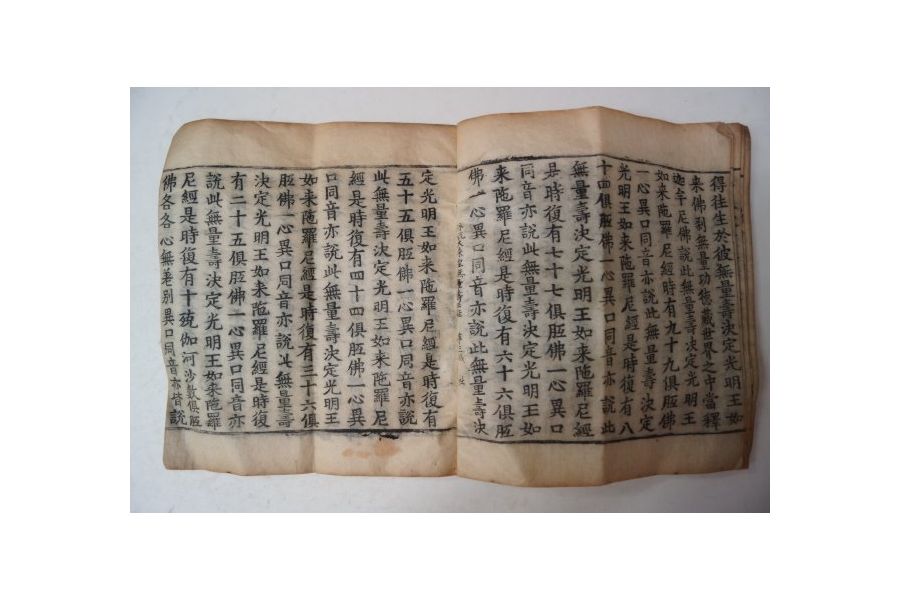 得往生於彼無量壽决定光明王如
来佛刹無量功德藏世界之中當釋
迦牟尼佛說此無量壽决定光明王
如来陁羅尼經是時復有九十九俱胝佛
一心異口同音亦說此無量壽决定
光明王如来陁羅尼經是時復有八
十四俱胝佛一心異口同音亦說此
無量壽决定光明王如来陁羅尼經
是時復有七十七俱胝佛一心異口
同音亦說此無量壽决定光明王如
来陁羅尼經是時復有六十六俱胝
佛一心異口同音亦說此無量壽决
定光明王如来陁羅尼經是時復有
五十五俱胝佛一心異口同音亦說
此無量壽决定光明王如来陁羅尼
經是時復有四十四俱胝佛一心異
口同音亦說此無量壽决定光明王
如来陁羅尼經是時復有三十六俱
胝佛一心異口同音亦說此無量壽
决定光明王如来陁羅尼經是時復
有二十五俱胝佛一心異口同音亦
說此無量壽决定光明王如来陁羅
尼經是時復有十殑伽河沙數俱胝
佛各各心無差别異口同音亦皆說